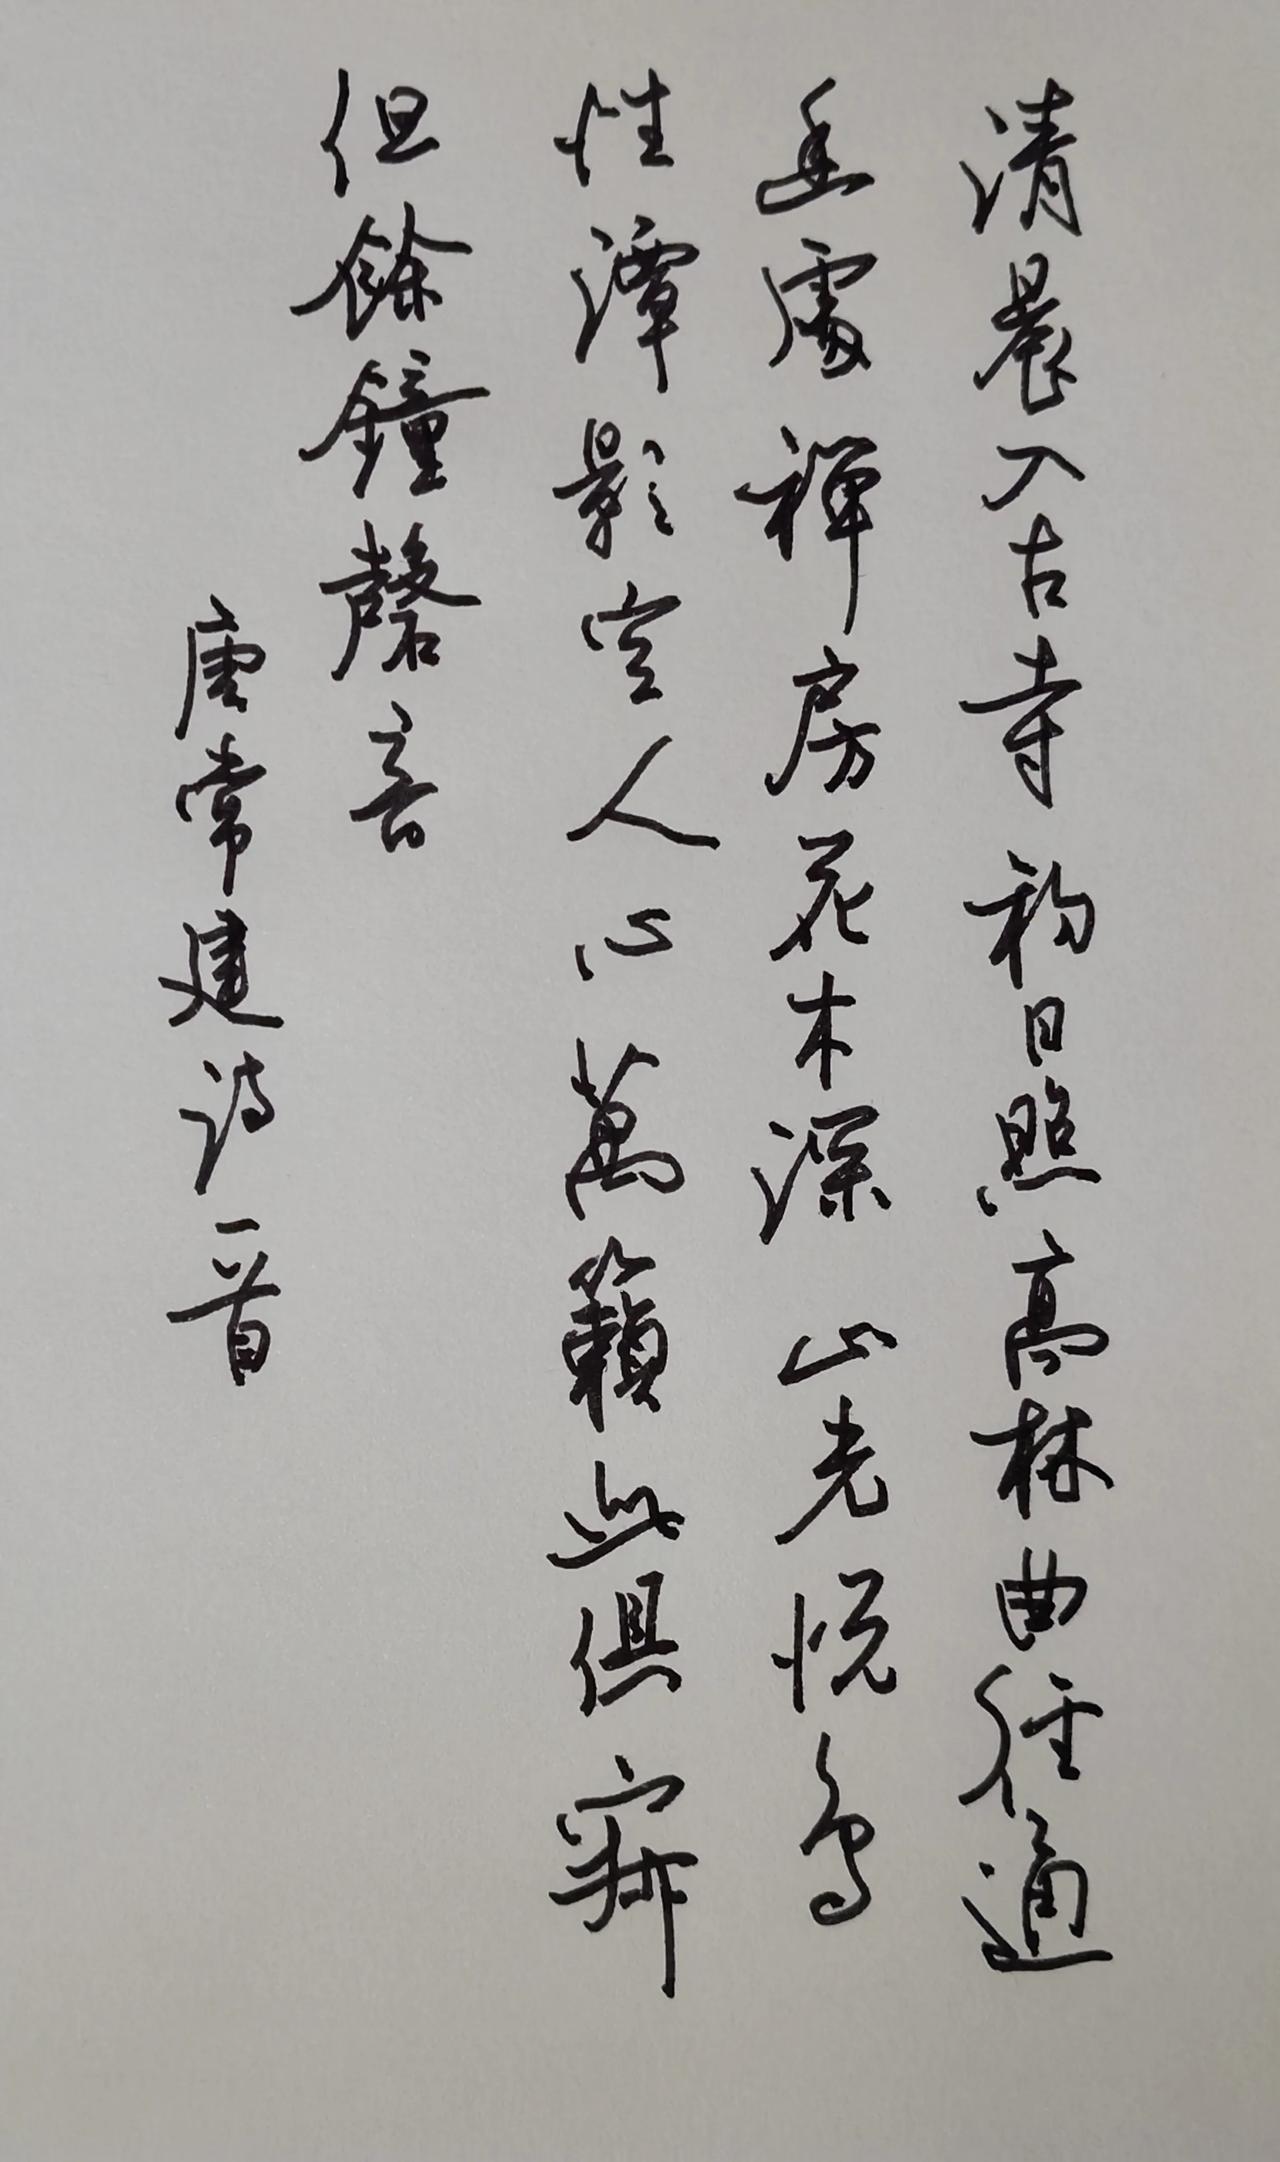 清晨入古寺初日照高林曲径通
幽處禅房花木深山光悦鸟
性潭影空人心萬籟此俱寂
但餘鐘磬音
唐常建诗一首